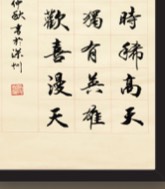 時稀高天
獨有英雄
歡喜漫天
書於深圳